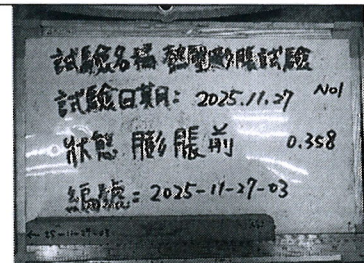 試驗名稱 熱壓膨脹試驗
試驗日期: 2025.11.27 No1
狀態 膨脹前 0.358
編號: 2025-11-27-03
25-11-27-03